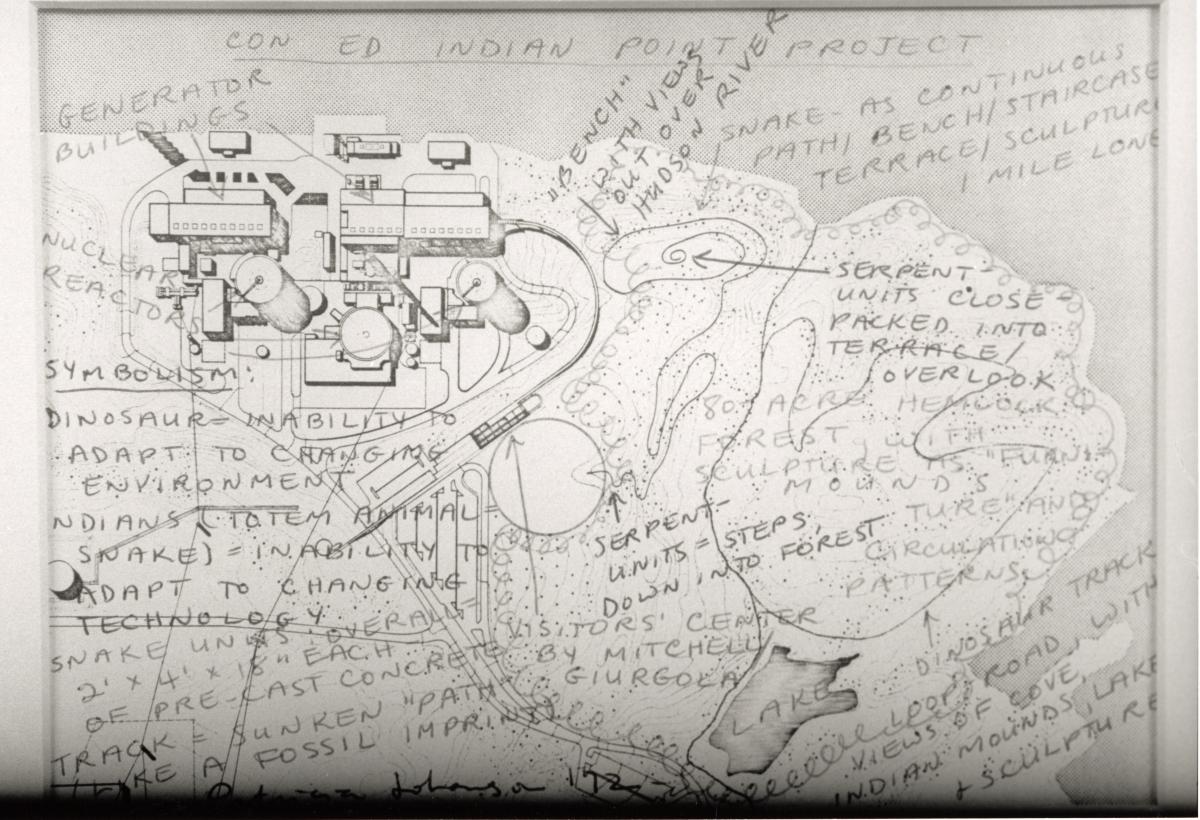 CON ED INDIAN POINT PROJECT
GENERATOR
BUILDINGS
"BENCH"
WITH VIEWS
OUT OVER
HUDSON RIVER
SNAKE - AS CONTINUOUS
PATH/ BENCH/STAIRCASE
TERRACE/ SCULPTUR
1 MILE LONG
NUCLEAR
REACTORS
SERPENT-
UNITS CLOSE-
PACKED INTO
TERRACE/
OVERLOOK
SYMBOLISM:
DINOSAUR = INABILITY TO
ADAPT TO CHANGING
ENVIRONMENT
NDIANS (TOTEM ANIMAL =
SNAKE) = INABILITY TO
ADAPT TO CHANGING
TECHNOLOGY
80 ACRE HEMLOCK
FOREST, WITH
SCULPTURE AS "FURNI-
MOUNDS
TURE" AND
CIRCULATION
PATTERNS
SERPENT-
UNITS = STEPS,
DOWN INTO FOREST
SNAKE UNITS OVERALL =
2' X 4' X 18" EACH
OF PRE-CAST CONCRETE
TRACK = SUNKEN "PATH"
LIKE A FOSSIL IMPRINT
VISITORS' CENTER
BY MITCHELL
GIURGOLA
LAKE
DINOSAUR TRACK
LOOP ROAD, WITH
VIEWS OF COVE,
INDIAN MOUNDS, LAKE
+ SCULPTURE
Patricia Johanson '72